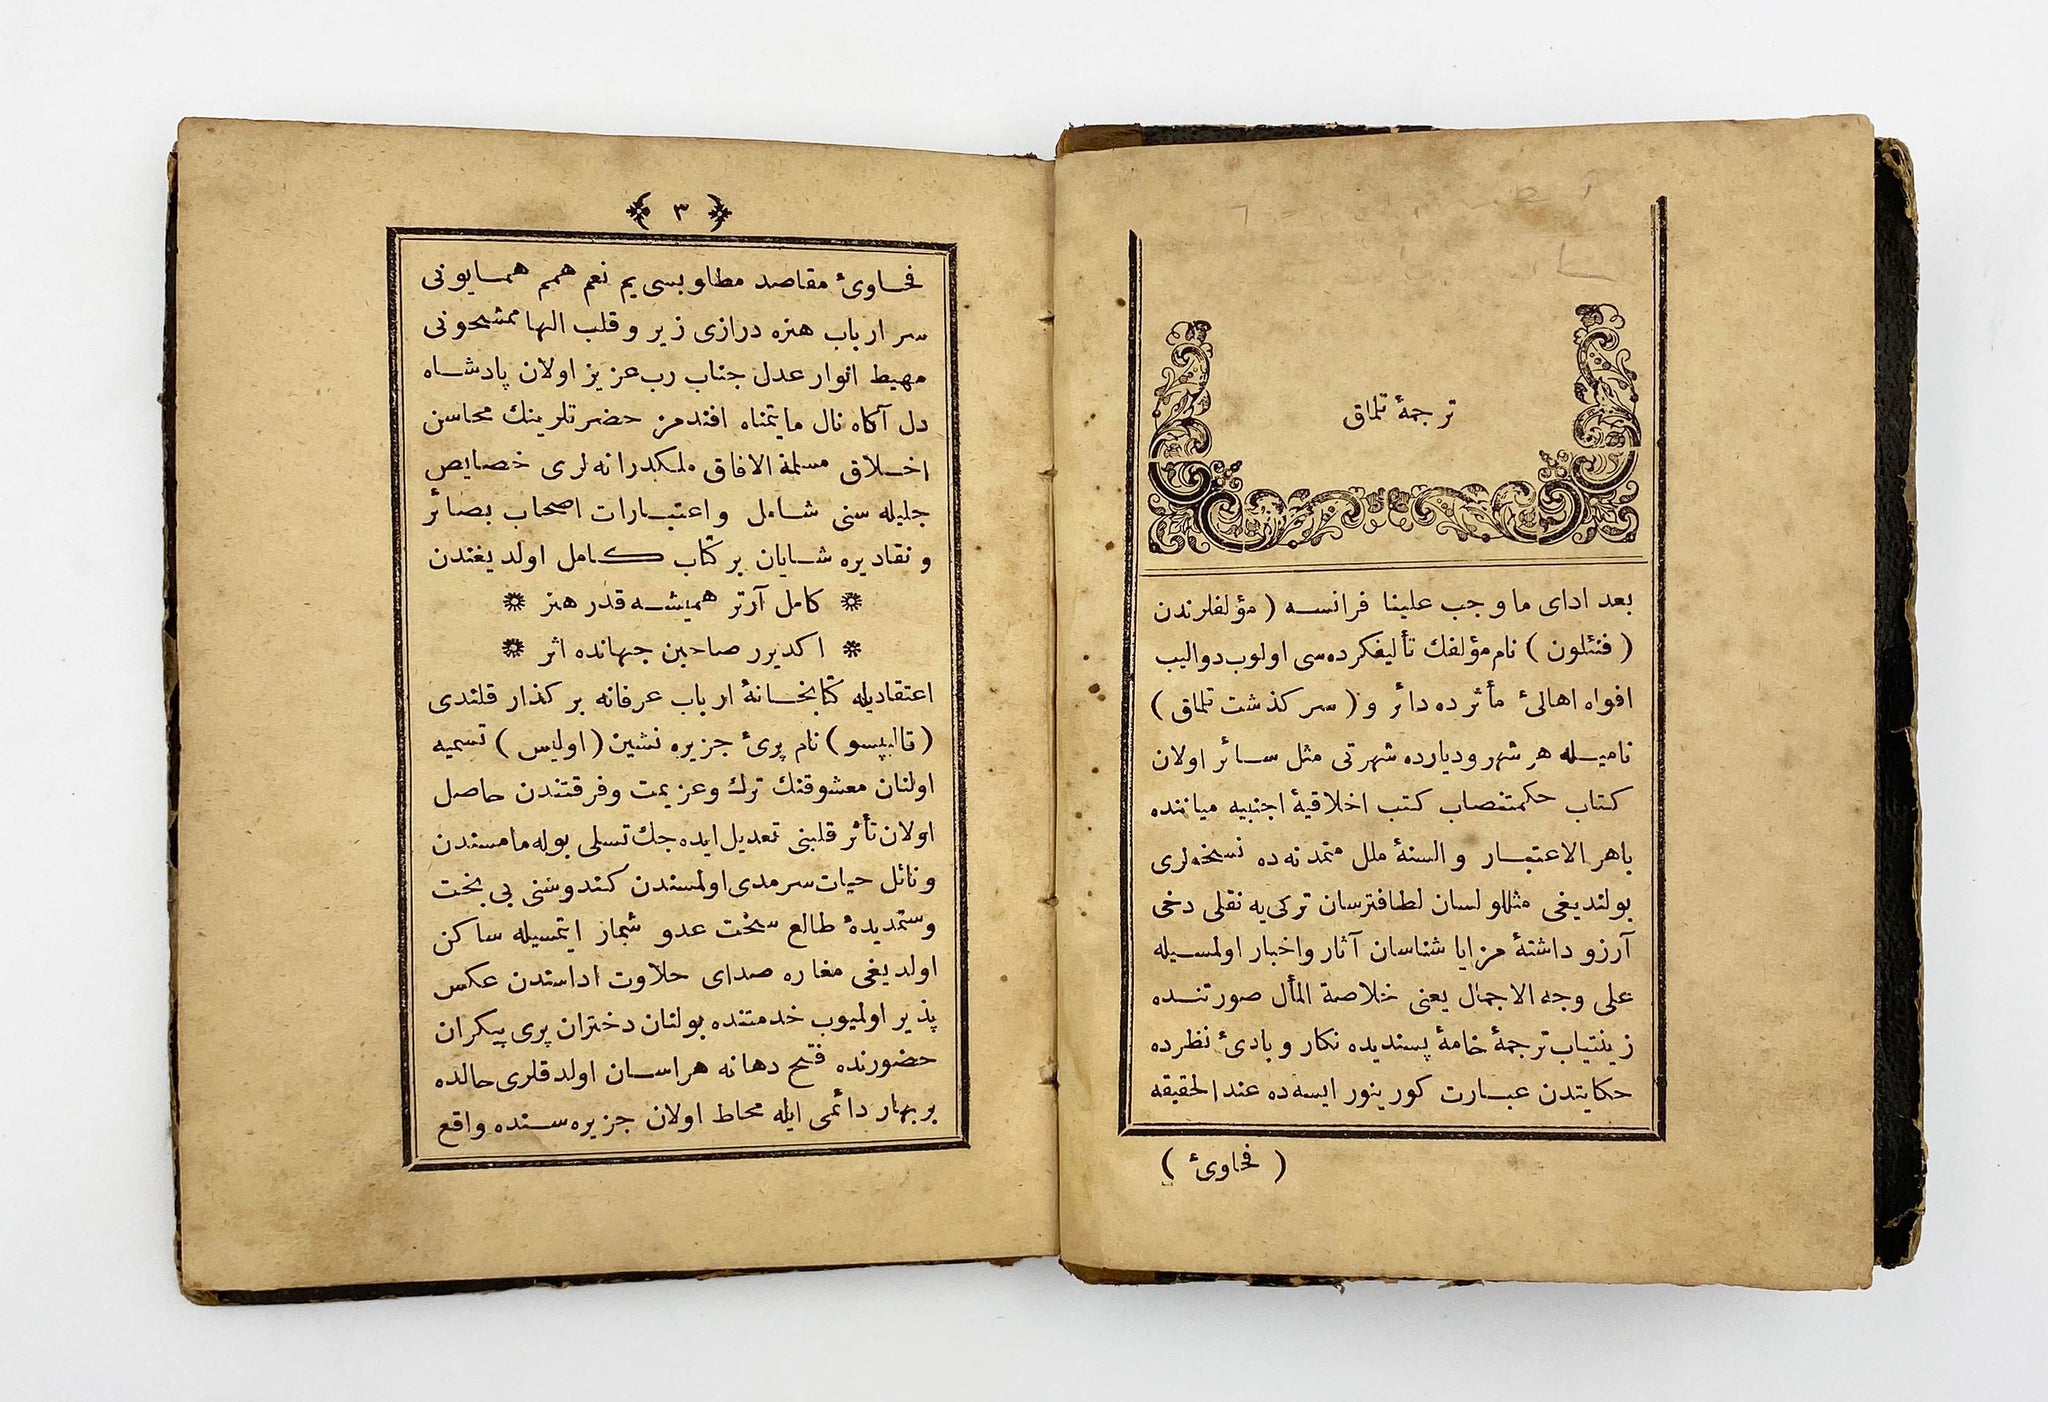 ترجمهٔ تلماق
بعد ادای ما وجب علینا فرانسه ( مؤلفلرندن
( فنئلون ) نام مؤلفك تألیفکرده سی اولوب دوالیب
افواه اهالیٔ مأثرده دائر و ( سرکذشت تلماق )
نامیله هر شهر ودیارده شهرتی مثل سائر اولان
کتاب حکمتنصاب کتب اخلاقیهٔ اجنبیه میاننده
باهر الاعتبار و السنهٔ ملل متمدنه ده نسخه لری
بولندیغی مثللو لسان لطافترسان ترکی یه نقلی دخی
آرزو داشتهٔ مزایا شناسان آثار واخبار اولمسیله
علی وجه الاجمال یعنی خلاصة المأل صورتنده
زینتیاب ترجمهٔ خامهٔ پسندیده نکار و بادیٔ نظرده
حکایتدن عبارت کورینور ایسه ده عند الحقیقه
( فحاویٔ )
٣
فحاویٔ مقاصد مطاوبسی یم نعم همم همایونی
سر ارباب هنزه درازی زیر و قلب الهامشحونی
مهیط انوار عدل جناب رب عزیز اولان پادشاه
دل آکاه نال مایتمناه افندمز حضرتلرینك محاسن
اخلاق مسلمة الافاق ملکدارانه لری خصایص
جلیله سنی شامل و اعتبارات اصحاب بصائر
و نقادیره شایان برکتاب کامل اولدیغندن
❋ کامل آرتر همیشه قدر هنز ❋
❋ اکدیرر صاحبن جهانده اثر ❋
اعتقادیله کتابخانهٔ ارباب عرفانه برکذار قلندی
( قالیپسو ) نام پریٔ جزیره نشین ( اولیس ) تسمیه
اولنان معشوقنك ترك وعزیمت وفرقتندن حاصل
اولان تأثر قلبنی تعدیل ایده جك تسلی بوله مامسندن
ونائل حیات سرمدی اولمسندن کندوسنی بی بخت
وستمدیدهٔ طالع سخت عدو شماز ایتمسیله ساکن
اولدیغی مغاره صدای حلاوت اداسندن عکس
پذیر اولمیوب خدمتنده بولنان دختران پری پیکران
حضورنده فتح دهانه هراسان اولدقلری حالده
بر بهار دائمی ایله محاط اولان جزیره سنده واقع